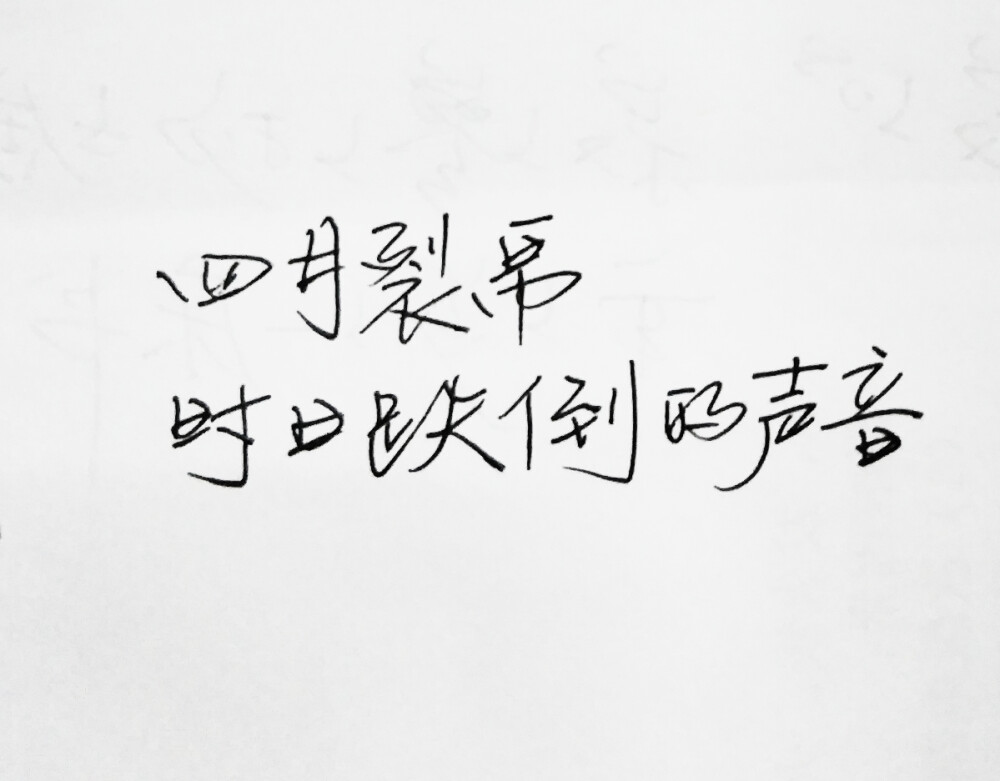 四月裂帛
时日跌倒的声音